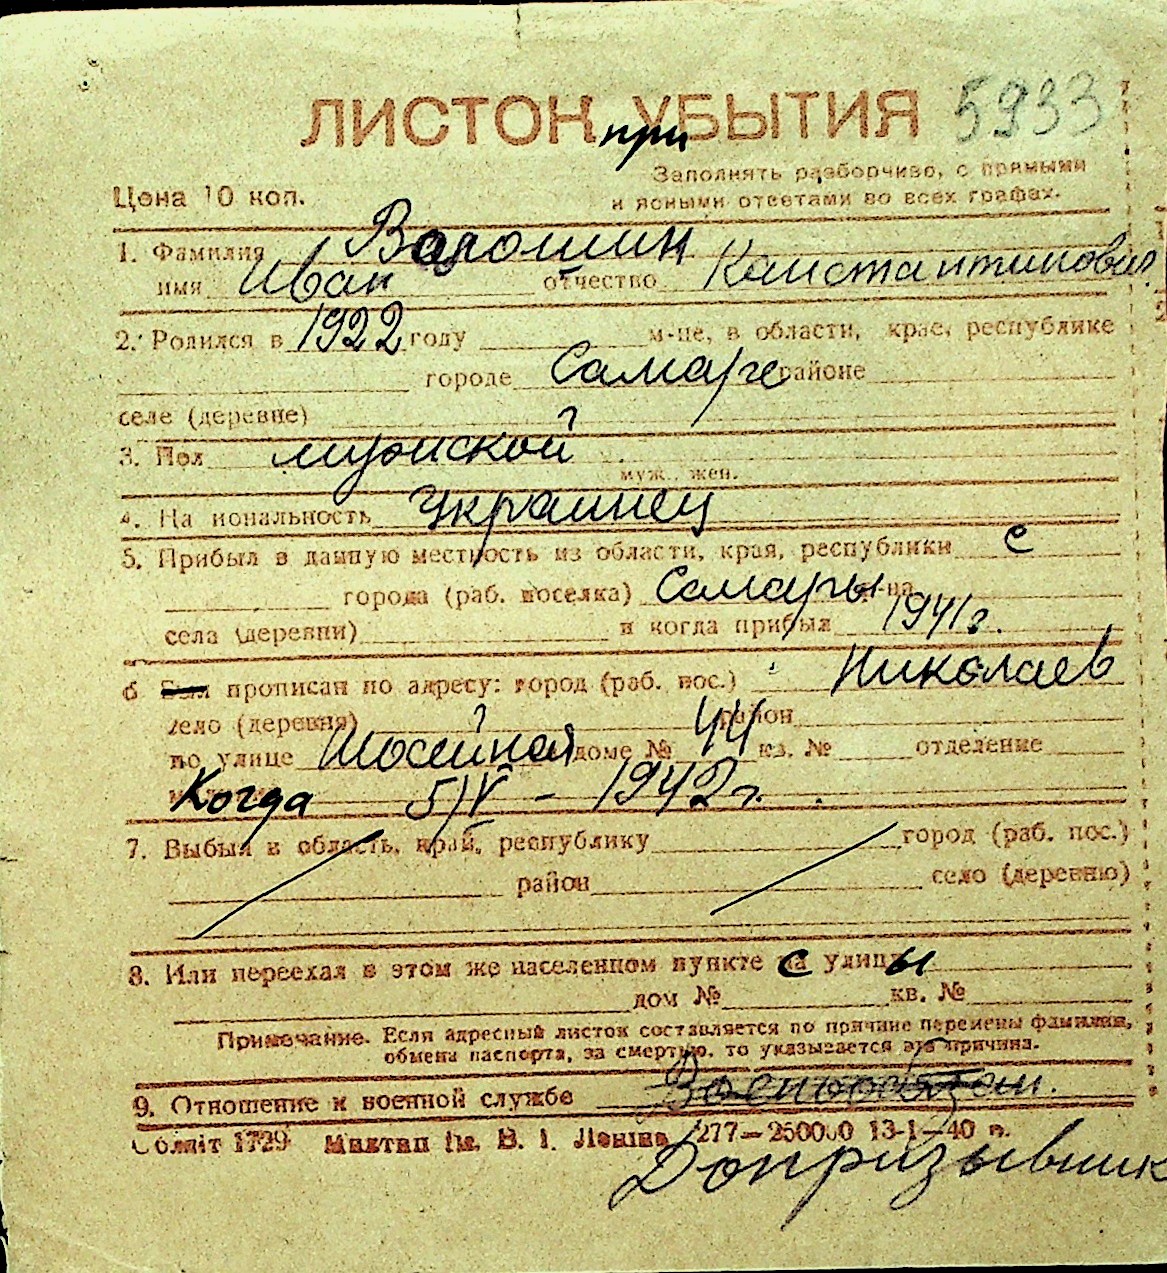 ЛИСТОК при УБЫТИЯ 5933
Заполнять разборчиво, с прямыми
Цена 10 коп. и ясными ответами во всех графах.
1. Фамилия Ворошин
имя Иван отчество Константинович
2. Родился в 1922 году м-це, в области, крае, республике
городе Самаре районе
селе (деревне)
3. Пол мужской
муж. жен.
4. На иональность Украинец
5. Прибыл в данную местность из области, края, республики с
города (раб. поселка) Самары р-на
села (деревни) и когда прибыл 1941 г.
6 Был прописан по адресу: город (раб. пос.) Николаев
село (деревня) район
по улице Шосейной доме № 44 кв. № отделение
Когда 5/V - 1942 г.
7. Выбыл в область, край, республику город (раб. пос.)
район село (деревню)
8. Или переехал в этом же населенном пункте с улицы
дом № кв. №
Примечание. Если адресный листок составляется по причине перемены фамилии,
обмена паспорта, за смертью, то указывается эта причина.
9. Отношение к военной службе
Обліт 1729 Миктип ім. В. І. Леніна 277—250000 13-1—40 р.
Допризывник